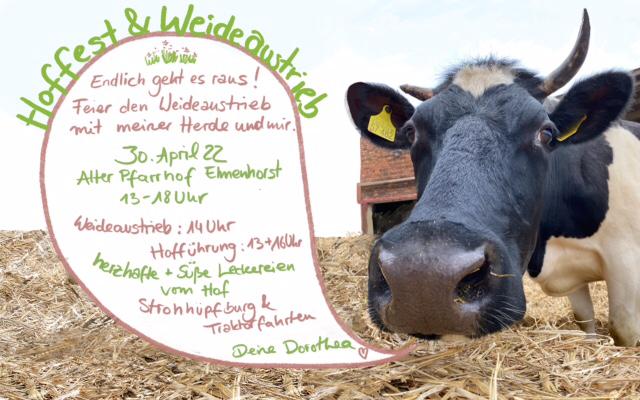 Hoffest & Weideaustrieb
Endlich geht es raus!
Feier den Weideaustrieb
mit meiner Herde und mir.
30. April 22
Alter Pfarrhof Elmenhorst
13-18 Uhr
Weideaustrieb: 14 Uhr
Hofführung: 13+16 Uhr
herzhafte + süße Leckereien
vom Hof
Strohhüpfburg &
Traktorfahrten
Deine Dorothea